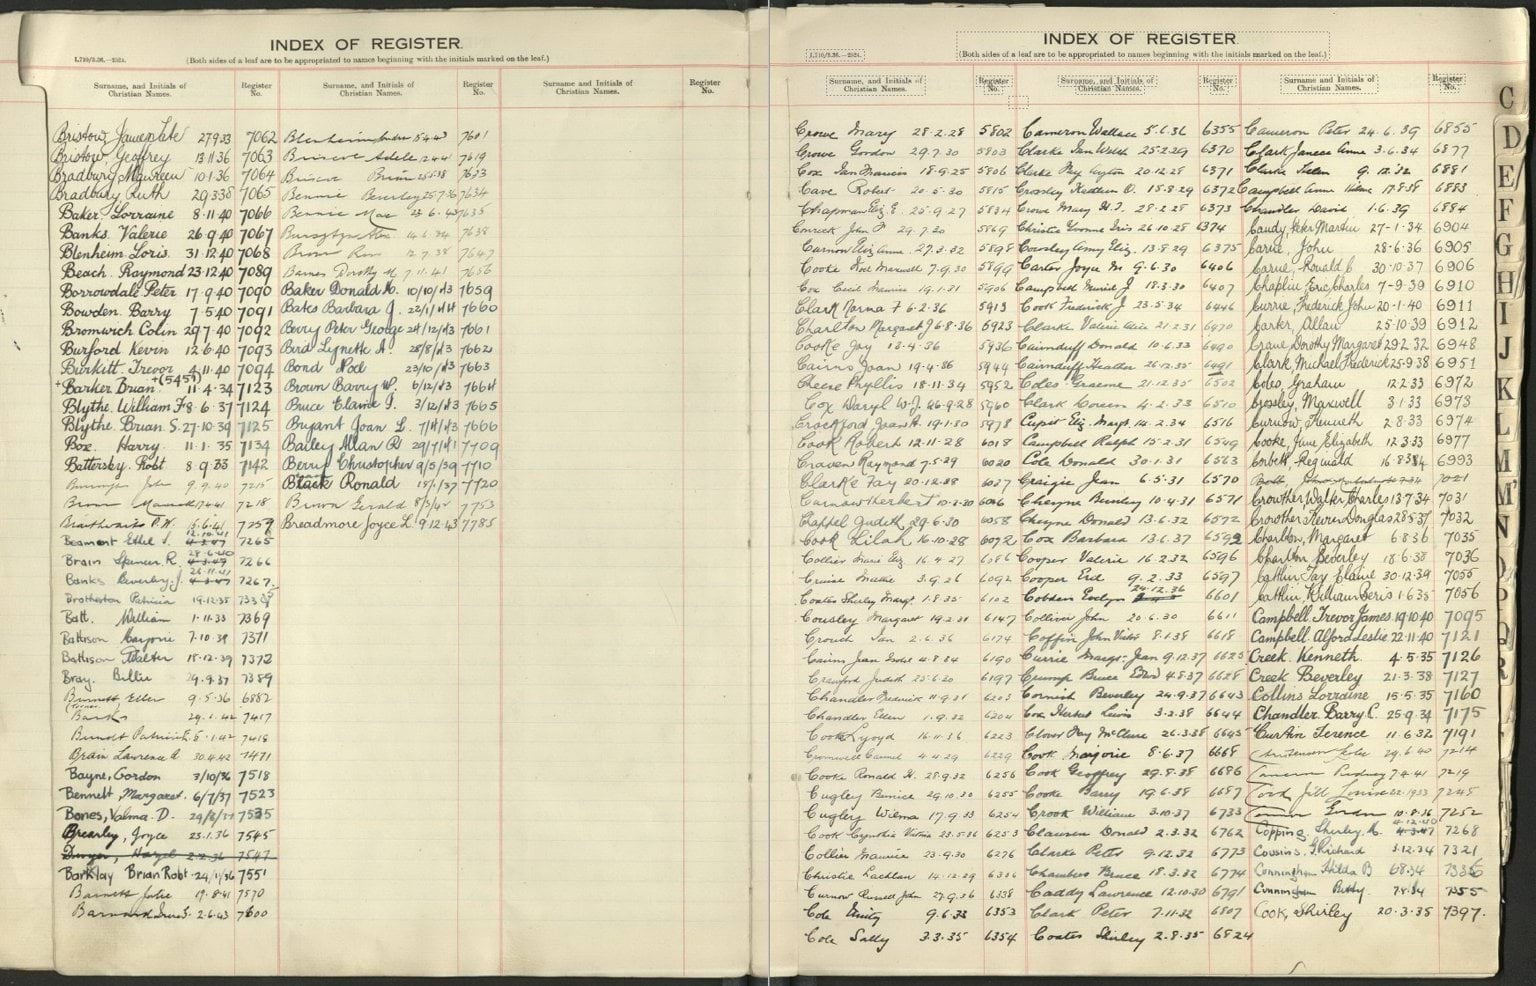 INDEX OF REGISTER.
1,710/3.36.—2524.
(Both sides of a leaf are to be appropriated to names beginning with the initials marked on the leaf.)
Surname, and Initials of Christian Names.
Register No.
Surname, and Initials of Christian Names.
Register No.
Surname, and Initials of Christian Names.
Register No.
Bristow 27.9.33 7062
Bristow, Geoffrey 13.11.36 7063
Bradbury, Maureen 10.1.36 7064
Bradbury, Ruth 29.3.38 7065
Baker, Lorraine 8.11.40 7066
Banks, Valerie 26.9.40 7067
Blenheim Loris. 31.12.40 7068
Beach. Raymond 23.12.40 7089
Borrowdale Peter 17.9.40 7090
Bowden. Barry 7.5.40 7091
Bromwich Colin 29.7.40 7092
Burford Kevin 12.6.40 7093
Burkitt Trevor 4.11.40 7094
+(545)
Barker Brian 11.4.34 7123
Blythe. William F. 8.6.37 7124
Blythe. Brian. S. 27.10.39 7125
Box. Harry. 11.1.35 7134
Battersby. Robt 8.9.33 7142
John 9.7.40 7215
Brown 7218
Braithwaite P.W. 15.6.41 7259
Beamont Ethel J. 12.10.41 7265
Brain Spencer. R. 28.6.40 7266
Banks Beverley. J. 7267
Brotherton Patricia 19.12.35
Batt. William 1.11.33 7369
Battison Marjorie 7.10.38 7371
Battison Walter 18.12.39 7372
Bray. Billie 29.9.37 7389
Burnett Ellen 9.5.36 6882
Banks 29.1.42 7417
Patricia E. 5.1.42 7418
Brain Lawrence A 30.4.42 7471
Bayne, Gordon 3/10/36 7518
Bennett, Margaret. 6/7/37 7523
Bones, Valma. D. 7535
Brearley, Joyce 23.1.36 7545
Dwyer, Hazel 2.2.36 7547
Barklay Brian Robt. 24/1/36 7551
Barnett Julie 19.8.41 7570
Barnard 2.6.43 7600
Blenheim 5.4.43 7601
Briscoe Adele 7619
Briscoe Brian 7633
Bennie Beverley 25.7.36 7634
Bennie Max 23.6.43 7635
7638
Brown Ron 12.7.38 7647
Barnes Dorothy M. 7.11.41 7656
Baker Donald K. 10/10/43 7659
Bates Barbara J. 22/1/41 7660
Berry Peter George 24/12/43 7661
Bird Lynette A. 28/8/43 7662
Bond Noel 23/10/43 7663
Brown Barry W. 6/12/43 7664
Bruce Elaine J. 3/12/43 7665
Bryant Joan L. 7666
Bailey Allan R. 7709
Berry Christopher 9/5/39 7710
Black Ronald 7720
Brown Gerald 8/3/42 7753
Breadmore Joyce L. 9.12.43 7785
INDEX OF REGISTER.
1,710/3.36.—2524.
(Both sides of a leaf are to be appropriated to names beginning with the initials marked on the leaf.)
Surname, and Initials of Christian Names.
Register No.
Surname, and Initials of Christian Names.
Register No.
Surname, and Initials of Christian Names.
Register No.
Crowe Mary 28.2.28 5802
Crowe Gordon 29.7.30 5803
Cox Ian Maurice 18.9.25 5806
Cave Robert 20.5.30 5815
Chapman Eliz. E. 25.9.27 5834
John F. 29.7.20 5869
Curnow Eliz. Anne 27.3.32 5898
Cooke Noel Maxwell 7.9.30 5899
Cox Cecil Maurice 19.1.31 5906
Clark Norma F 6.2.36 5913
Charlton Margaret J. 6.8.36 5923
Cooke Joy 13.4.36 5936
Cairns Joan 19.4.36 5944
Cheere Phyllis 18.11.34 5952
Cox Daryl W.J. 26.9.28 5960
Crockford, Joan H. 19.1.30 5978
Cook Robert 12.11.28 6018
Craven Raymond 7.5.29 6020
Clarke Fay 20.12.28 6027
Carnaw Herbert 10.2.30 6046
Chappel Judith 29.6.30 6058
Cook Lilah 16.10.28 6072
Collier Marie Eliz 16.4.27 6086
Cruise Mattie 3.9.26 6092
Coates Shirley Margt. 1.8.35 6102
Cousley Margaret 19.2.31 6147
Crouch Ian 2.6.36 6174
Cairns Jean 4.8.34 6190
Crawford Judith 25.6.20 6197
Chandler Frederick 11.9.31 6203
Chandler Ellen 1.9.32 6204
Cook Lloyd 16.11.36 6223
Cromwell 4.4.29 6229
Cooke Ronald H. 28.9.32 6256
Cugley Bernice 29.10.30 6255
Cugley Wilma 17.9.33 6254
Cook Cynthia 23.5.36 6253
Collier Maurice 23.9.30 6276
Christie Lachlan 14.12.29 6336
Curnow Russell John 27.9.36 6338
Cole Unity 9.6.33 6353
Cole Sally 3.3.35 6354
Cameron Wallace 5.6.36 6355
Clarke Ian Walth 25.2.29 6370
Clarke May 20.12.28 6371
Crossley 15.8.29 6372
Crowe Mary H.J. 28.2.28 6373
Christie Yvonne Iris 26.10.28 6374
Crossley Amy Eliz. 13.8.29 6375
Carter Joyce M. 9.6.30 6406
Campbell Muriel J. 18.3.30 6407
Cook Frederick J. 23.5.34 6446
Clarke Valerie 21.2.31 6470
Cairnduff Donald 10.6.33 6490
Cairnduff Heather 26.12.35 6491
Coles Graeme 21.12.35 6502
Clark Doreen 4.2.33 6510
Cupit Eliz. Margt. 14.2.34 6516
Campbell Ralph 15.2.31 6549
Cole Donald 30.1.31 6563
Craigie Jean 6.5.31 6570
Cheyne Beverley 10.4.31 6571
Cheyne Donald 13.6.32 6572
Cox Barbara 13.6.37 6592
Cooper Valerie 16.2.32 6596
Cooper Eric 9.2.33 6597
Cobden Evelyn 24.12.36 6601
Colliver John 20.6.30 6611
Coffin John Victor 8.1.38 6618
Currie Margt. Jean 9.12.37 6625
Crump Bruce Edw 4.8.37 6628
Cornish Beverley 24.9.37 6643
Cox Herbert Lewis 3.2.38 6644
Clover May McClure 26.3.38 6645
Cook Marjorie 8.6.37 6668
Cook Geoffrey 29.8.38 6686
Cooke Barry 19.6.38 6687
Crook William 3.10.37 6733
Clausen Donald 2.3.32 6762
Clarke Peter 9.12.32 6773
Chambers Bruce 18.3.32 6774
Caddy Lawrence 12.10.30 6791
Clark Peter 7.11.32 6807
Coates Shirley 2.8.35 6824
Cameron Peter 24.6.39 6855
Clark Janice Anne 3.6.34 6877
Clarke Helen 9.12.32 6881
Campbell Anne 17.8.38 6883
Chandler David 1.6.39 6884
Caudy, Peter Martin 27-1.34 6904
Carne, John 28.6.36 6905
Carne, Ronald C 30.10.37 6906
Chaplin, Eric Charles 7-9.39 6910
Currie, Frederick John 20-1.40 6911
Carter, Allan 25.10.39 6912
Crane, Dorothy Margaret 29.2.32 6948
Clark, Michael Frederick 25.9.38 6951
Coles, Graham 12.2.33 6972
Crossley, Maxwell 3.1.33 6973
Curnow, Kenneth 2.8.33 6974
Cooke, June Elizabeth 12.3.33 6977
Corbett, Reginald 16.8.34 6993
7021
Crowther, Walter Charles 13.7.34 7031
Crowther, Kevin Douglas 28.5.37 7032
Charlton, Margaret 6.8.36 7035
Charlton, Beverley 18.6.38 7036
Catlin, Fay Elaine 30.12.39 7055
Catlin, William 1.6.35 7056
Campbell Trevor James 19.10.40 7095
Campbell Alford Leslie 22.11.40 7121
Creek. Kenneth. 4.5.35 7126
Creek Beverley 21.3.38 7127
Collins Lorraine 15.5.35 7160
Chandler. Barry. C. 25.9.34 7175
Curtin Terence 11.6.32 7191
Christensen 29.6.40 7214
Cameron Rodney 7.4.41 7219
Cook Jill Louise 7245
Cameron Gordon 10.8.36 7252
Copping. Shirley. M. 7268
Cousins, G. Richard 3.12.34 7321
Cunningham Hilda B 6.8.34 7336
Cunningham Betty. 7355
Cook, Shirley 20.3.35 7397.
C
D
E
F
G
H
I
J
K
L
M
N
O
P
Q
R